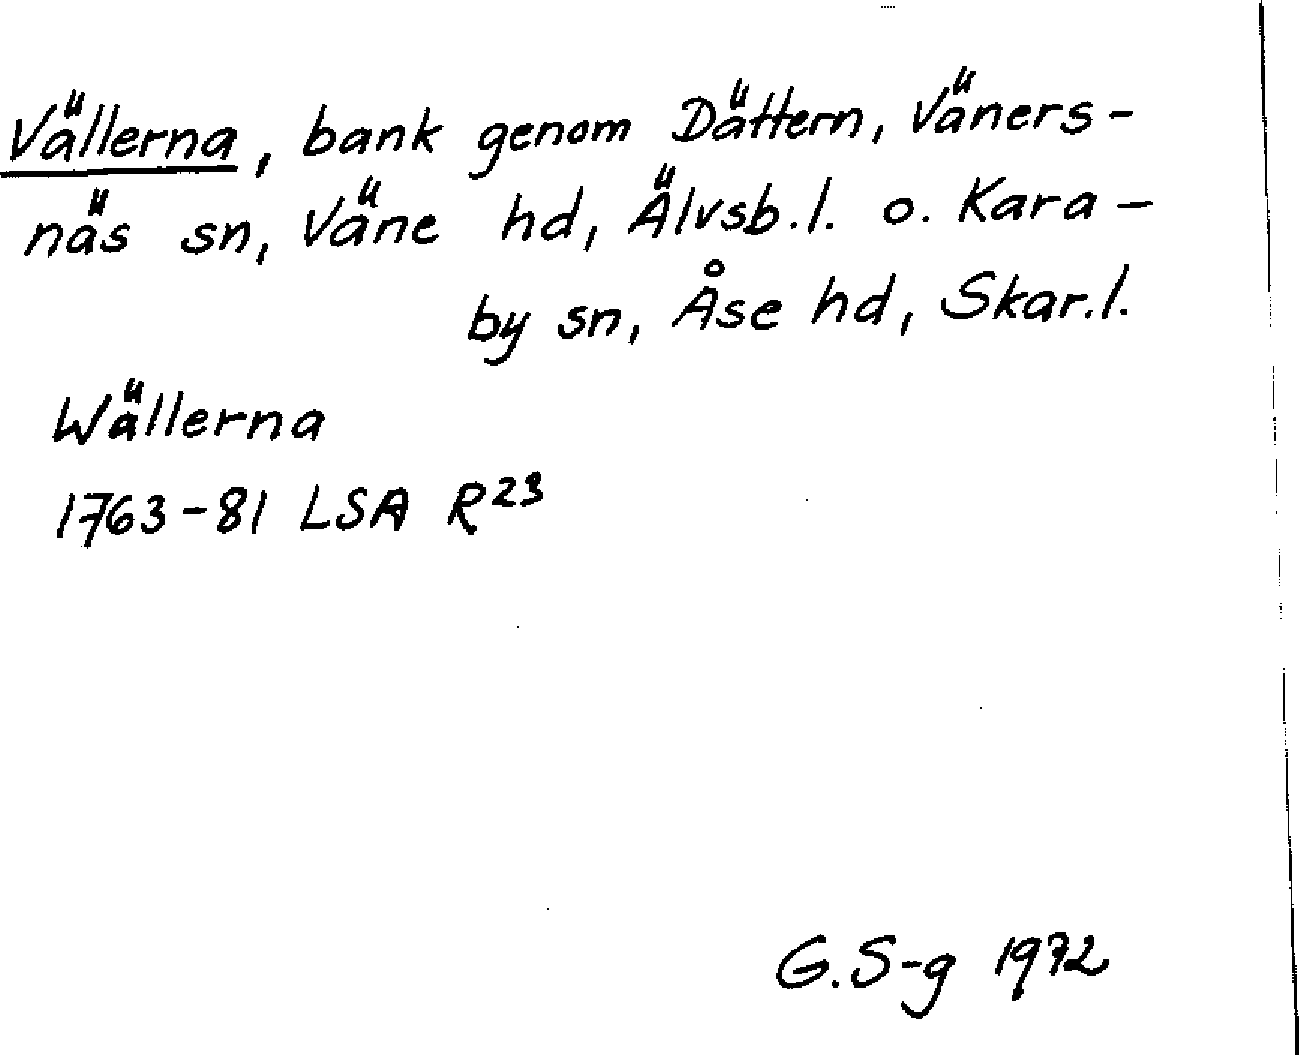 Vällerna, bank genom Dättern, Väners-
näs sn, Väne hd, Älvsb.l. o. Kara-
by sn, Åse hd, Skar.l.
Wällerna
1763-81 LSA R23
G.S-g 1972